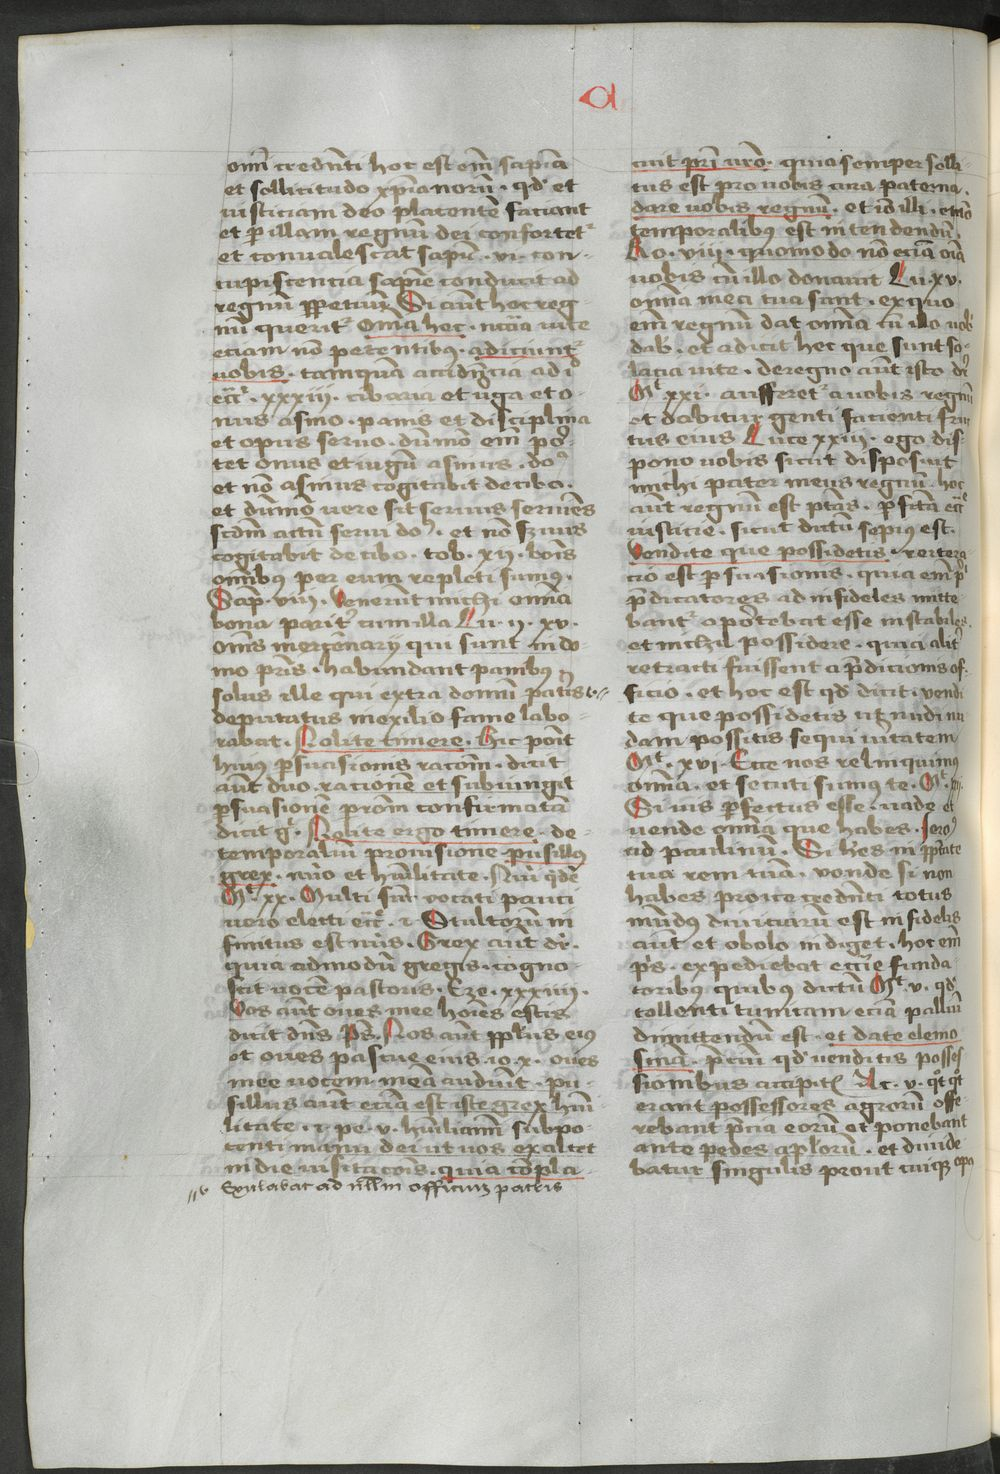 a
om̄i credn̄ti hoc est om̄ sapiā
et sollicitudo xp̄ianorū · qd' et
iusticiam deo placentē faciant
et p̱ illam regnū dei confortet'
et conualescat sapiē · vi · con-
cupiscencia sapiē conducit ad
regnū ꝑpetuum Si aūt hoc reg-
nū querit' om̄a hec · nccīa vite
eciam nō petentibus · adiciunt'
uobis · tamquā accidn̄cia ad id
ecc̄i · xxxiii · cibaria et uirga et o-
nus asino · panis et disciplina
et opus seruo · dūmō em̄ por-
tet onus et iugū asinus ·
et nō asinus cogitabit de cibo ·
et dūmō uere sit seruus seruiēs
scd̄m actū serui et nō seruus
cogitabit de cibo · tob · xii · bōis
om̄ibus per eum repleti sumus ·
Sap̄ · vii · Venerūt michi om̄ia
bona parit' cum illa Lu · xv ·
om̄is mercēnarij qui sunt in do-
mo pr̄is · habundant panibus
solus ille qui extra domū patris
deputatus in exilio fame labo-
rabat · Nolite timere · hic pōit
huius ꝑsuasionis racōm · dicit
aūt duo · racionē et subiungit
ꝑsuasionē ꝓ racōm confirmatā
dicit g° · Nolite ergo timere · de-
temporaliū prouisione · pusillus
grex · nu͞io et hūilitate ·
Mt xx · Multi sūt vocati pauci
uero electi ecc̄i · i · Stultorum in
finitus est nu͞is · Grex aūt dr̄ ·
quia admodū gregis · cogno-
scit uocē pastoris · Eze · xxxiiii ·
Vos aūt oues mee hoīes estis
dicit dn̄s ps̄ · Nos aūt ppl's eius
et oues pascue eius · io · x · oues
mee uocem meā audiūt · pu-
sillus aūt eciā est iste grex hūi-
litate · i · pe · v · hu͞iliamī sub po-
tenti manu dei ut uos exaltet
in die uisitacōis · quia cōpla-
exulabat ad nll'm officium patris
cuit pr̄i vr̄o · quia semper solli-
tus est pro uobis cura paterna ·
dare uobis regnū · et id illi · et nō
temporalibus est intendendū ·
Ro · viii · quomodo nō eciā oīa
uobis cū illo donauit Lu · xv ·
om̄ia mea tua sunt · ex quo
em̄ regnū dat om̄ia cū illo uob'
dab' · et adicit hec que sunt so-
lacia uite · de regno aūt isto dr̄
Mt xxi · aufferet' a uobis regnū
et dabitur genti facienti fru
tus eius Luce xxii · ego dis-
pono uobis sicut disposuit
michi pater meus regnū · hoc
aūt regnum est ptās · ꝑfcā ecc̄e
iusticie · sicut dictū sepius est ·
Vendite que possidetis ·
cio est ꝑsuasionis · quia em̄
p̄dicatores ad infideles mitte-
bant' oportebat esse instabiles ·
et nichil possidere · quia alit'
retracti fuissent a p̄dicacionis of-
ficio · et hoc est qd' dicit · vendi
te que possidetis ut nudi nu
dam possitis sequi uitatem
Mt · xvi · Ecce nos relinquimus
om̄ia · et secuti sumus te · Mt ·
Si uis ꝑfectus esse · uade et
uende om̄ia que habes · Iero'
ad paulinū · Si hēs in ptāte
tua rem tuā · vende si non
habes proice credn̄ti totus
mūdus diuiciarū est infidelis
aūt et obolo indiget · hoc em̄
p's · expediebat ecc̄ie funda
toribus quibus dictū Mt · v · qd'
tollenti tunicam eciā palliū
dimittendū est · et date elemo
sinā · p̄ciū qd' uenditis posses
sionibus accipitis Ac · v · qt'qt'
erant possessores agrorū offe-
rebant p̄cia eorū et ponebant
ante pedes ap̄lorū · et diuide
batur singulis prout cuiq̄ opus